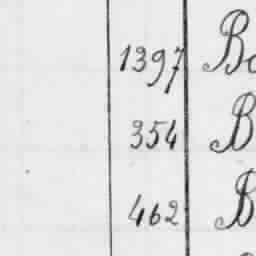 1397 Bo
354 B
462 B